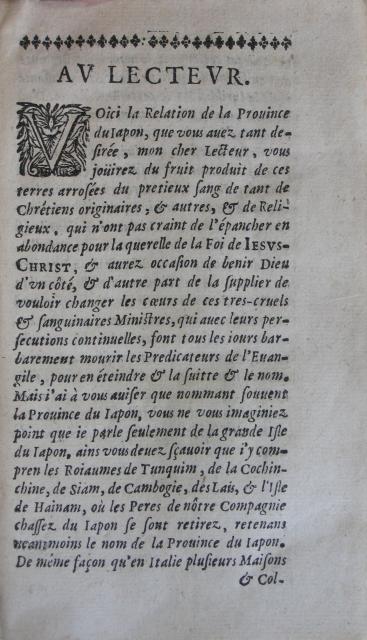 AV LECTEVR.
VOici la Relation de la Prouince
du Iapon, que vous auez tant de-
ſirée, mon cher Lecteur, vous
joüirez du fruit produit de ces
terres arroſées du pretieux ſang de tant de
Chrétiens originaires, & autres, & de Reli-
gieux, qui n'ont pas craint de l'épancher en
abondance pour la querelle de la Foi de IESVS-
CHRIST, & aurez occaſion de benir Dieu
d'vn côté, & d'autre part de la ſupplier de
vouloir changer les cœurs de ces tres-cruels
& ſanguinaires Miniſtres, qui auec leurs per-
ſecutions continuelles, font tous les iours bar-
barement mourir les Predicateurs de l'Euan-
gile, pour en éteindre & la ſuitte & le nom.
Mais i'ai à vous auiſer que nommant ſouuent
la Prouince du Iapon, vous ne vous imaginiez
point que ie parle ſeulement de la grande Iſle
du Iapon, ains vous deuez ſçauoir que i'y com-
pren les Roiaumes de Tunquim, de la Cochin-
chine, de Siam, de Cambogie, des Lais, & l'Iſle
de Hainam, où les Peres de nôtre Compagnie
chaſſez du Iapon ſe ſont retirez, retenans
neanmoins le nom de la Prouince du Iapon.
De méme façon qu'en Italie pluſieurs Maiſons
& Col-